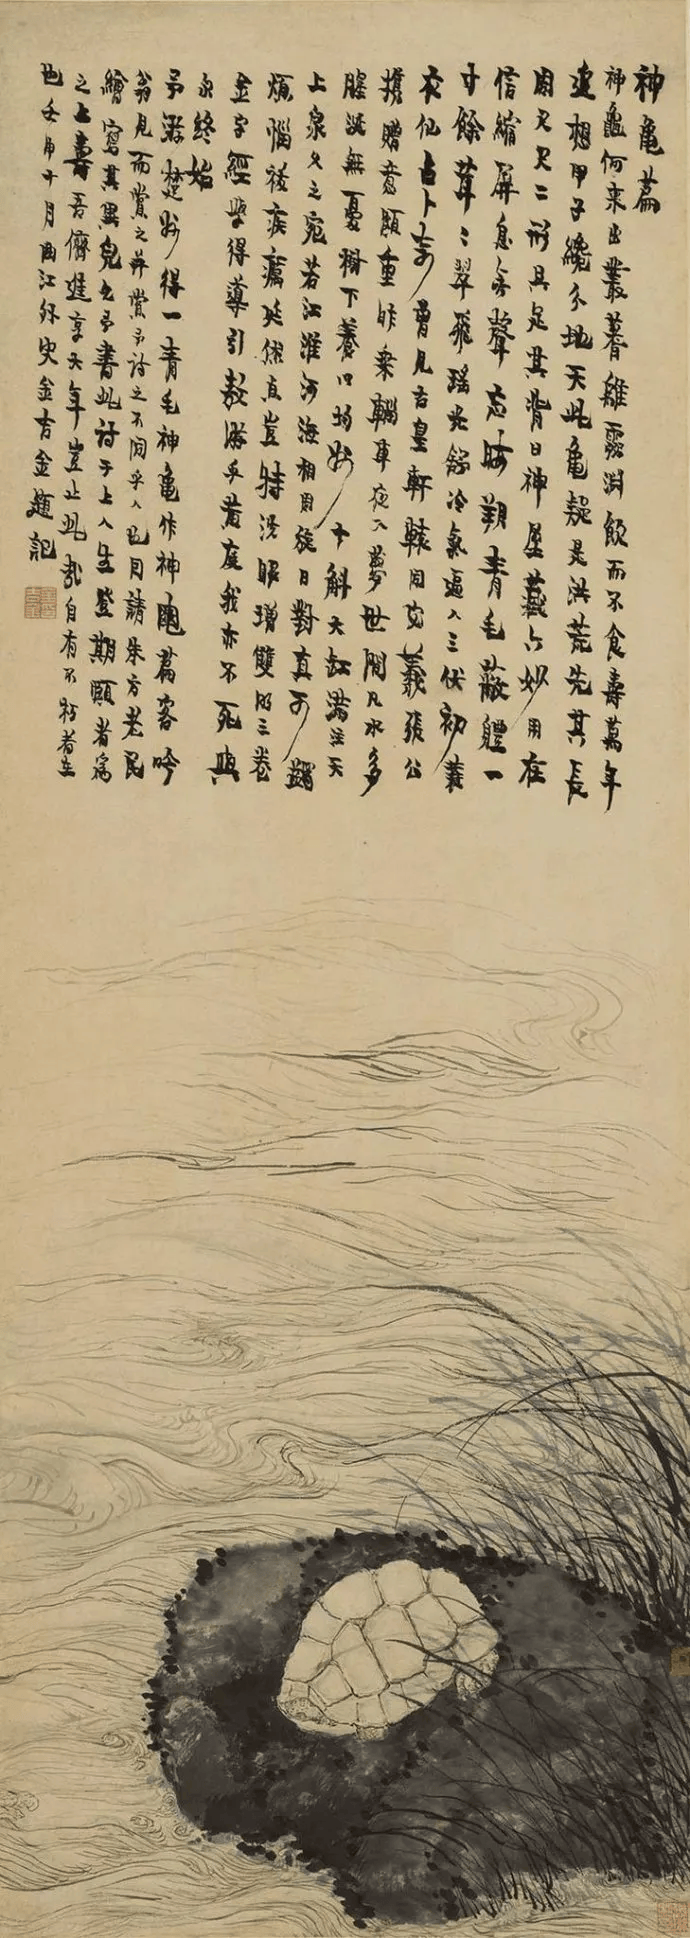 神龜篇
神龜何來出叢蓍離靈淵飲而不食壽萬年
遠想甲子纔分地天此龜疑是洪荒先其長
用又尺二形具足其背曰神屋藏六妙用在
信縮屏息無聲忘晦朔青毛蔽體一
寸餘茸茸翠飛瑤光餘冷氣逼人三伏初蓑
衣仙占卜吉曾見古皇軒轅同宓羲張公
攜贈意頗重昨乘輜車夜入夢世間凡水多
腥涎無憂樹下養口均好十斛大缸滿注天
上泉久之宛若江淮河海相周旋日對真可蠲
煩惱祛疾癘延俗真豈特洗眼增雙明三卷
金字經學得導引敖游乎黃庭我亦不死與
永終始
予游楚州得一青毛神龜作神龜篇客吟
翁見而賞之并賞予詩之不同乎人也因請朱方老民
繪寫其異兒也予書此詩于上人生登期頤者為
之上壽吾儕進享大年豈止此哉自有不朽者在
也壬申十月曲江外史金吉金題記